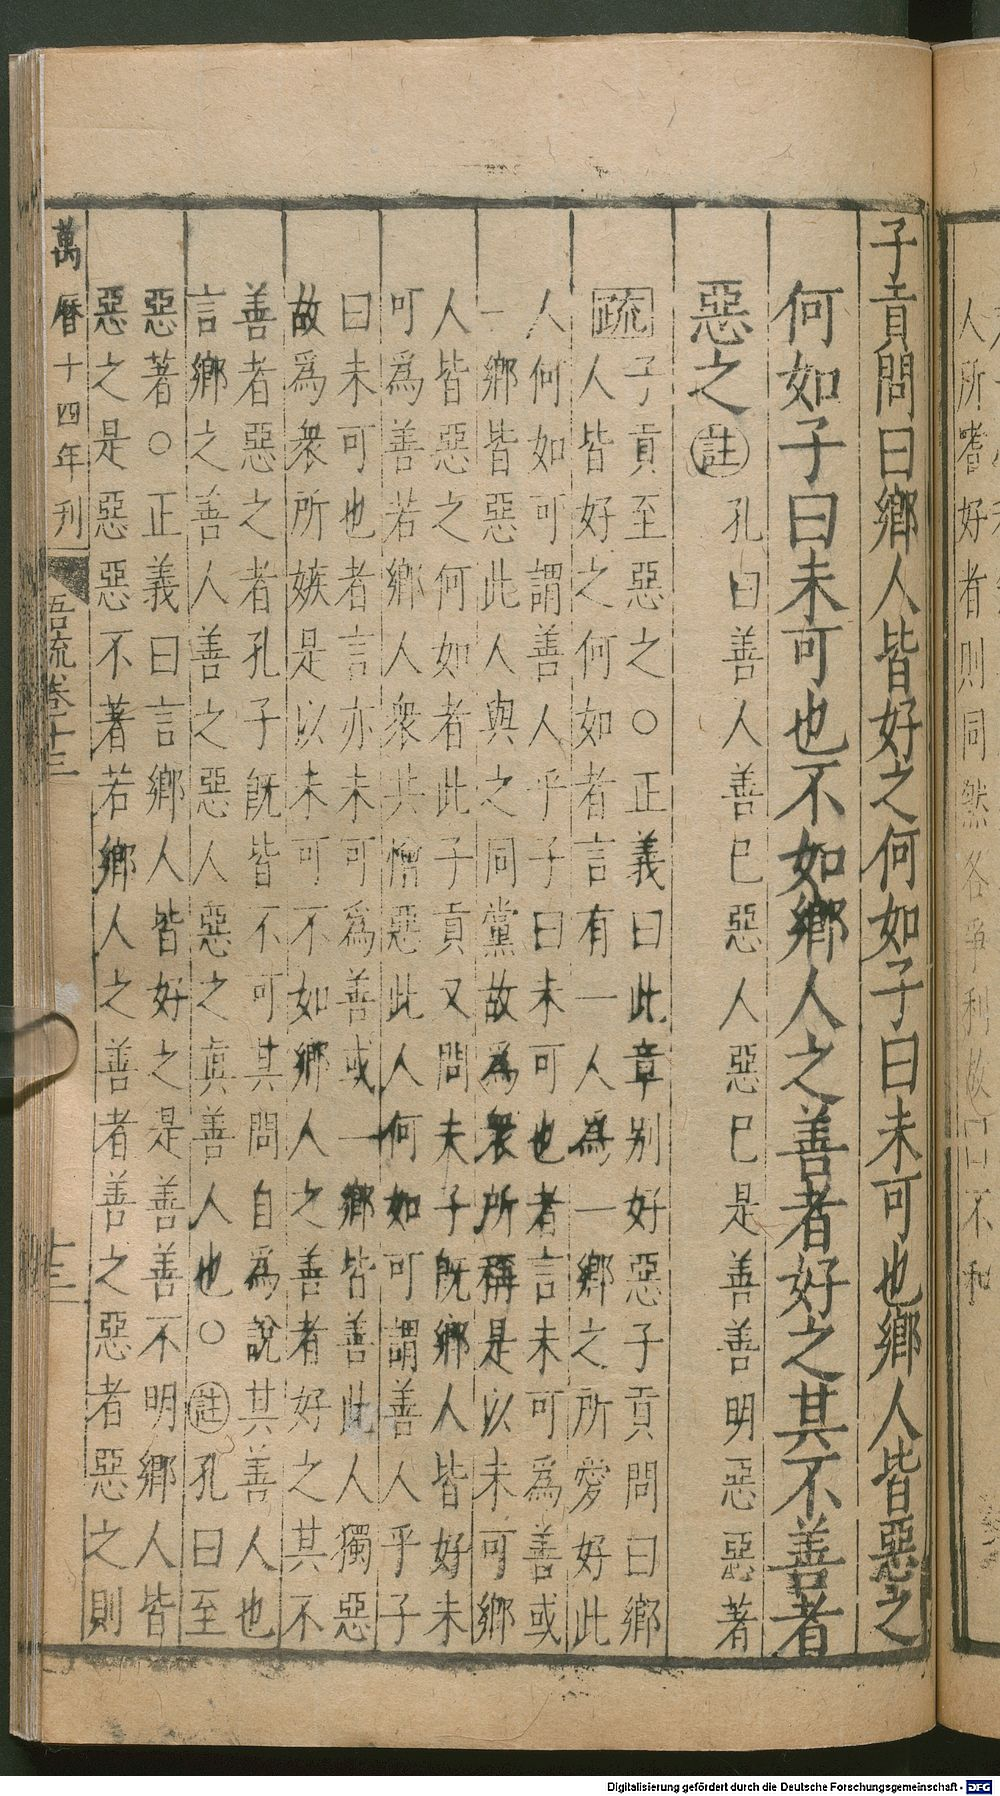 人所嗜好者則同然各爭利故曰不和
子貢問曰鄉人皆好之何如子曰未可也鄉人皆惡之
何如子曰未可也不如鄉人之善者好之其不善者
惡之註孔曰善人善已惡人惡已是善善明惡惡著
疏子貢至惡之○正義曰此章别好惡子貢問曰鄉
人皆好之何如者言有一人爲一鄉之所愛好此
人何如可謂善人乎子曰未可也者言未可爲善或
一鄉皆惡此人與之同黨故爲衆所稱是以未可鄉
人皆惡之何如者此子貢又問夫子既鄉人皆好未
可爲善若鄉人衆共憎惡此人何如可謂善人乎子
曰未可也者言亦未可爲善或一鄉皆善此人獨惡
故爲衆所嫉是以未可不如鄉人之善者好之其不
善者惡之者孔子既皆不可其問自爲說其善人也
言鄉之善人善之惡人惡之真善人也○註孔曰至
惡著○正義曰言鄉人皆好之是善善不明鄉人皆
惡之是惡惡不著若鄉人之善者善之惡者惡之則
萬曆十四年刋
語疏卷十三
十三
Digitalisierung gefördert durch die Deutsche Forschungsgemeinschaft - DFG